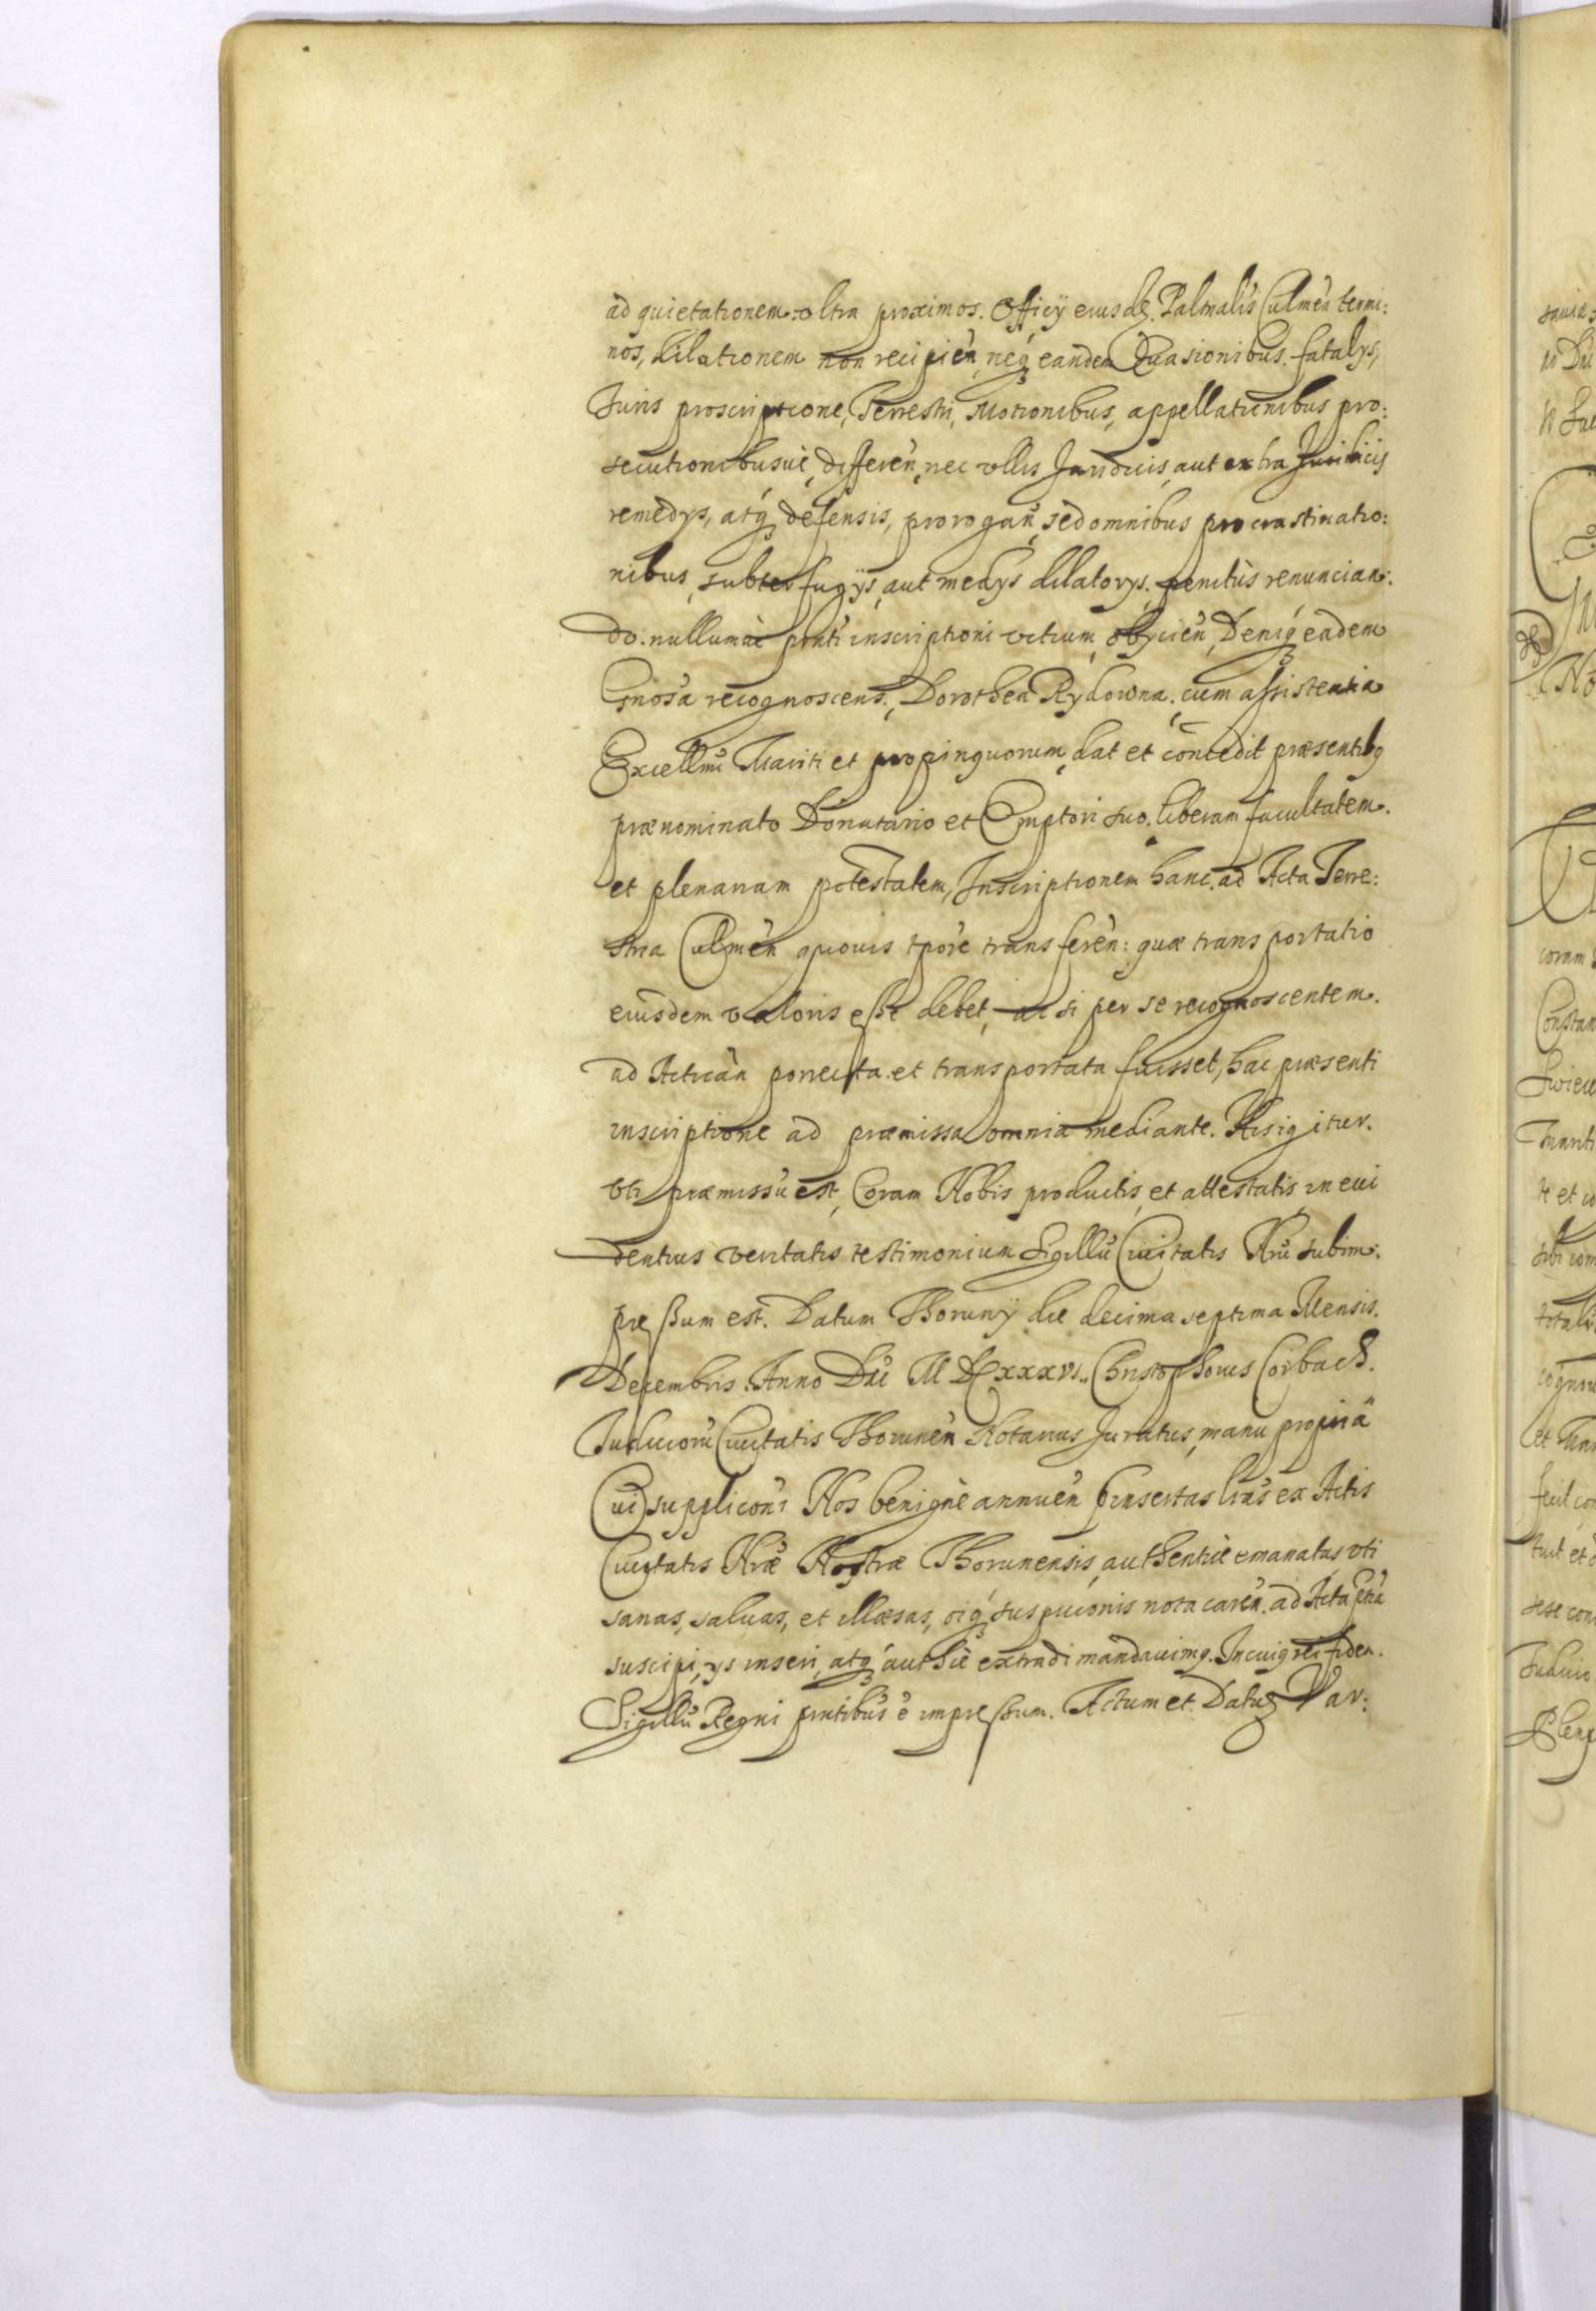 ad quietationem vltra proximos Officÿ eiusdē Palnalis Culmeñ termi:
nos, dilationem non recipieñ, neq; eandem Euasionibus fatalÿs,
Juris proscriptione, Terrestri, Motionibus, appellationibus pro:
secutionibusue, differeñ, nec vllis Juridicis, aut extra Juridicis
remedÿs, atq; defensis, prorogañ, sed omnibus procrastinatio:
nibus, subterfugÿs, aut medÿs dilatorÿs. penitùs renuncian:
do. nullumue pnti inscriptioni vitium, obÿcieñ, Deniq; eadem
Gnosa recognoscens, Dorothea Rydowna, cum assistentia
Excellmi Mariti et propinquorum, dat et concedit præsentibq
prænominato Donatario et Emptori suo, liberam facultatem.
et plenariam potestatem, Inscriptionem hanc, ad Acta Terre:
stria Culmeñ quouis tpore transfereñ: quæ transportatio
eiusdem valoris esse debet, ac si per se recognoscentem.
ad Acticañ porrecta et transportata fuisset, hac præsenti
inscriptione ad præmissa omnia mediante. His igitur.
vti præmissū est, Coram Nobis productis, et attestatis, in eui
dentius veritatis testimonium Sigillū Ciuitatis Nrū subim:
pressum est. Datum Thorunÿ die decima septima Mensis.
Decembris. Anno Dni M DCxxxvi. Christophorus Corbach.
Judiciorū Ciuitatis Thoruneñ Notarius Juratus, manu propriâ
Cui supplicōni Nos benignè annueñ pinsertas lras ex Actis
Ciuitatis Nræ Nostræ Thorunensis, authenticè emanatas, vti
sanas, saluas, et illæsas, oiq; suspicionis nota careñ. ad Acta pñtia
suscipi, ÿs inseri, atq; authcè extradi mandauimq. In cuiq rei fidem.
Sigillū Regni pntibus ē impressum. Actum et Datū Var: